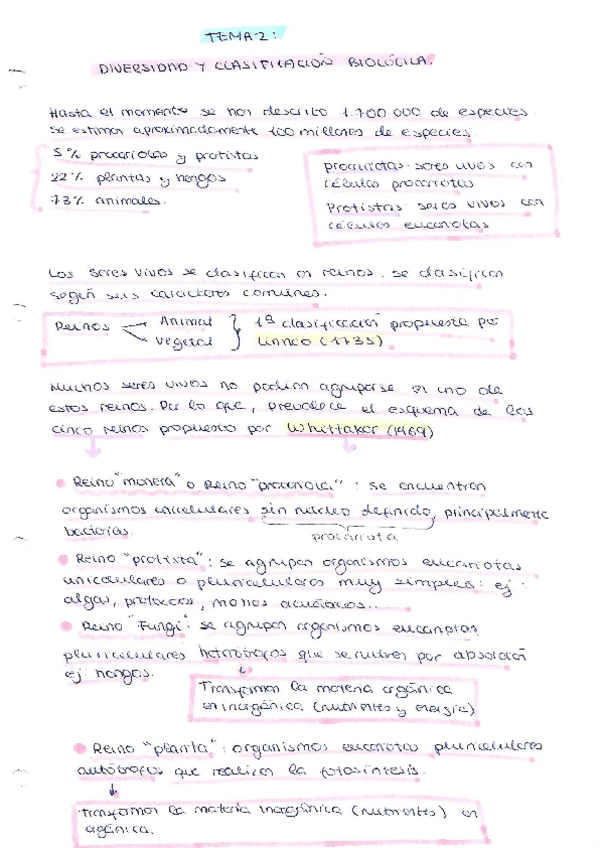 TEMA 2:
DIVERSIDAD Y CLASIFICACIÓN BIOLÓGICA.
Hasta el momento se han descrito 1.700.000 de especies.
Se estiman aproximadamente 100 millones de especies.
5% procariotas y protistas
22% plantas y hongos
73% animales.
procariotas: seres vivos con
células procariotas
Protistas seres vivos con
células eucariotas
Los seres vivos se clasifican en reinos. Se clasifican
según sus caracteres comunes.
Reinos Animal
Vegetal
1ª clasificación propuesta por
Linneo (1735)
Muchos seres vivos no podían agruparse en uno de
estos reinos. Por lo que, prevalece el esquema de los
cinco reinos propuesto por Whittaker (1969)
Reino "monera" o Reino "procariota": se encuentran
organismos unicelulares sin núcleo definido, principalmente
bacterias.
procariota
Reino "protista": se agrupan organismos eucariotas
unicelulares o pluricelulares muy simples: ej:
algas, protozoos, mohos acuáticos..
Reino "Fungi": se agrupan organismos eucariotas,
pluricelulares heterótrofos que se nutren por absorción
ej hongos.
Transforman la materia orgánica
en inorgánica (nutrientes y energía)
Reino "planta": organismos eucariotas pluricelulares
autótrofos que realizan la fotosíntesis.
Transforman la materia inorgánica (nutrientes) en
orgánica.